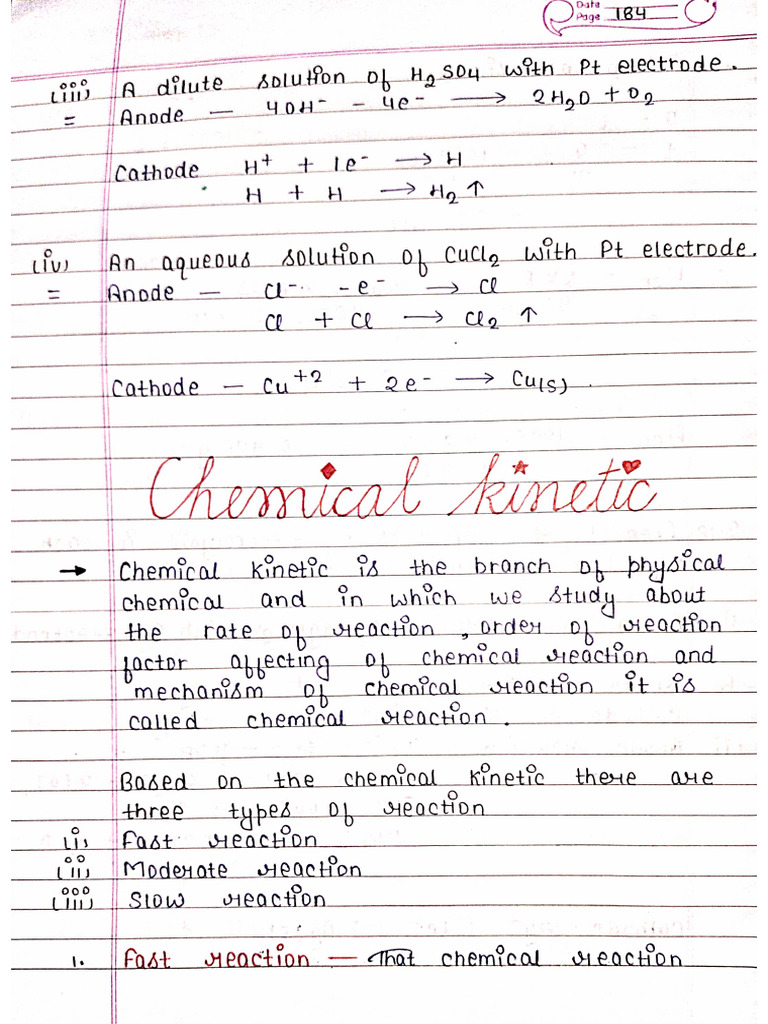 Date
Page 184
(iii) A dilute solution of H₂SO₄ with Pt electrode.
= Anode — 4OH⁻ - 4e⁻ ⟶ 2H₂O + O₂
Cathode H⁺ + 1e⁻ ⟶ H
H + H ⟶ H₂ ↑
(iv) An aqueous solution of CuCl₂ with Pt electrode.
= Anode — Cl⁻ -e⁻ ⟶ Cl
Cl + Cl ⟶ Cl₂ ↑
Cathode — Cu⁺² + 2e⁻ ⟶ Cu(s).
Chemical kinetic
→ Chemical kinetic is the branch of physical
chemical and in which we study about
the rate of reaction, order of reaction
factor affecting of chemical reaction and
mechanism of chemical reaction it is
called chemical reaction.
Based on the chemical kinetic there are
three types of reaction
(i) Fast reaction
(ii) Moderate reaction
(iii) Slow reaction
1. Fast reaction — That chemical reaction